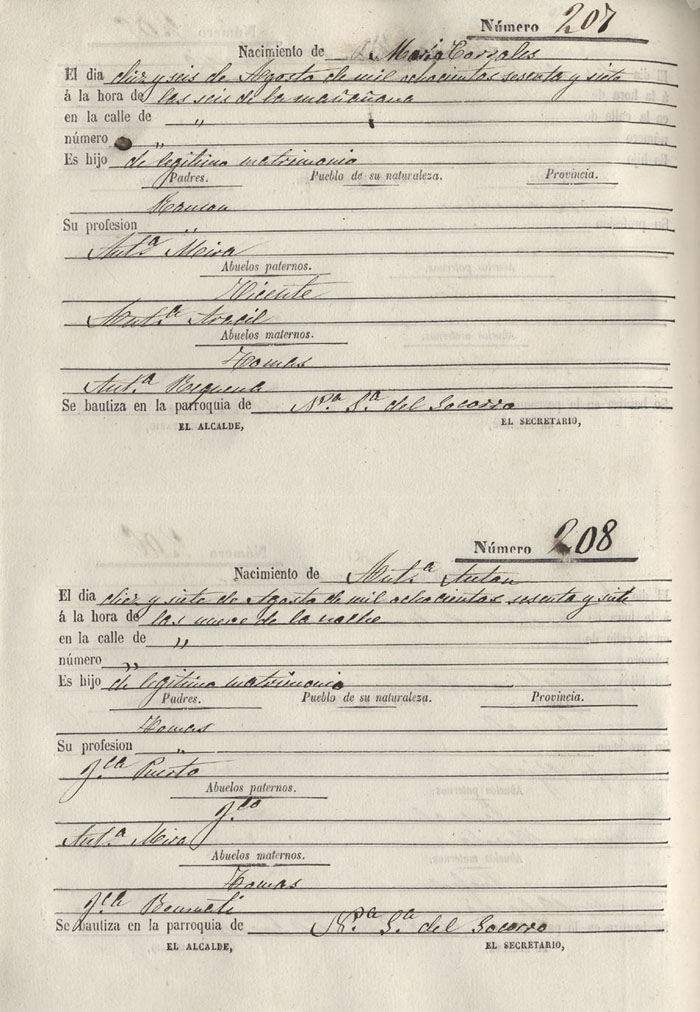 Número 207
Nacimiento de Maria
El dia diez y seis de Agosto de mil ochocientos sesenta y siete
á la hora de las seis de la mañañana
en la calle de "
número "
Es hijo de legitimo matrimonio
Padres. Pueblo de su naturaleza. Provincia.
Ramon
Su profesion "
Ant.ª Mira
Abuelos paternos.
Vicente
Ant.ª Aracil
Abuelos maternos.
Tomas
Ant.ª Requena
Se bautiza en la parroquia de N.ª S.ª del Socorro
EL ALCALDE, EL SECRETARIO,
Número 208
Nacimiento de Ant.ª Anton
El dia diez y siete de Agosto de mil ochocientos sesenta y siete
á la hora de las nueve de la noche
en la calle de "
número "
Es hijo de legitimo matrimonio
Padres. Pueblo de su naturaleza. Provincia.
Tomas
Su profesion "
Puerto
Abuelos paternos.
Ant.ª Mira
Abuelos maternos.
Tomas
Se bautiza en la parroquia de N.ª S.ª del Socorro
EL ALCALDE, EL SECRETARIO,